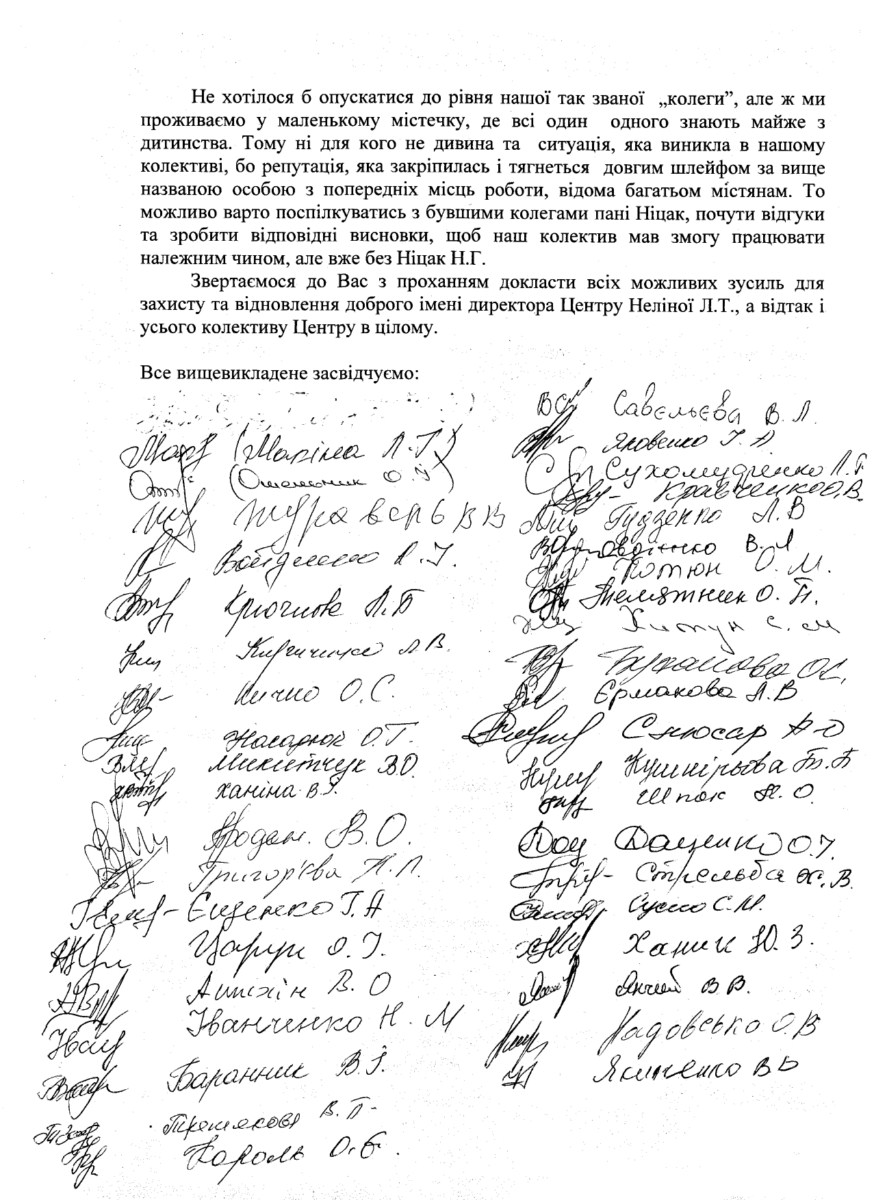 Не хотілося б опускатися до рівня нашої так званої „колеги”, але ж ми
проживаємо у маленькому містечку, де всі один одного знають майже з
дитинства. Тому ні для кого не дивина та ситуація, яка виникла в нашому
колективі, бо репутація, яка закріпилась і тягнеться довгим шлейфом за вище
названою особою з попередніх місць роботи, відома багатьом містянам. То
можливо варто поспілкуватись з бувшими колегами пані Ніцак, почути відгуки
та зробити відповідні висновки, щоб наш колектив мав змогу працювати
належним чином, але вже без Ніцак Н.Г.
Звертаємося до Вас з проханням докласти всіх можливих зусиль для
захисту та відновлення доброго імені директора Центру Неліної Л.Т., а відтак і
усього колективу Центру в цілому.
Все вищевикладене засвідчуємо:
(Маріна Л.Г.)
Журавель В В
Крючкова Л.П
Кириченко Л.В.
Кичко О.С.
Насадюк О.Г.
Микитчук В.О.
Ханіна В.І.
Григор'єва Н.Л.
Єщенко Г.А
Царук О.І.
Анихін В.О
Іванченко Н.М
Баранник В.І.
Третьякова В.П.
Король О.Є.
Савельєва В.Л.
Яковенко Г.А.
Сухомудренко Л.Г
Кравченко О.В.
Гудзенко Л.В
Котюн О.М.
Телятник О.П.
Єрмакова Л.В
Снюсар А.О
Кушнірьова Т.Б
Шпак Н.О.
Даценко О.У.
Стрельба Ж.В.
Суско С.М.
Ханик Ю.З.
Надовсько О.В
Якименко В.В